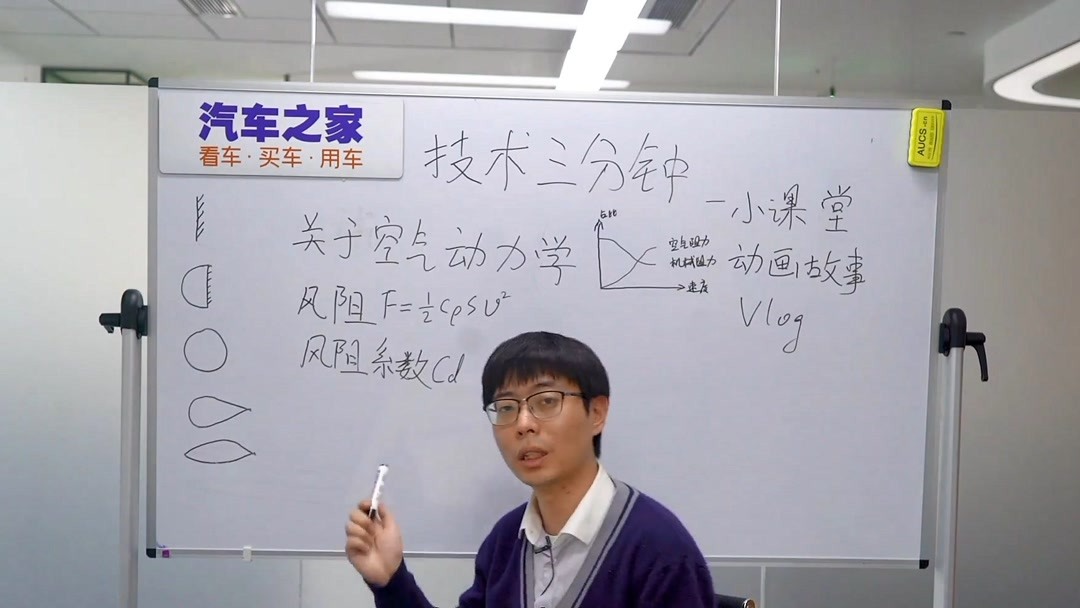 汽车之家
看车·买车·用车
AUCS-cn
技术三分钟
关于空气动力学
风阻 F=½CρSv²
风阻系数Cd
占比
空气阻力
机械阻力
速度
-小课堂
动画/故事
Vlog